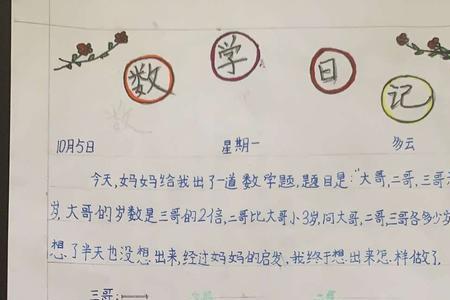 数学日记
10月5日 星期一 多云
今天,妈妈给我出了一道数学题,题目是:"大哥,二哥,三哥
岁,大哥的岁数是三哥的2倍,二哥比大哥小3岁,问大哥,二哥,三哥各多少岁
想了半天也没想出来,经过妈妈的启发,我终于想出来怎样做了.
三哥: